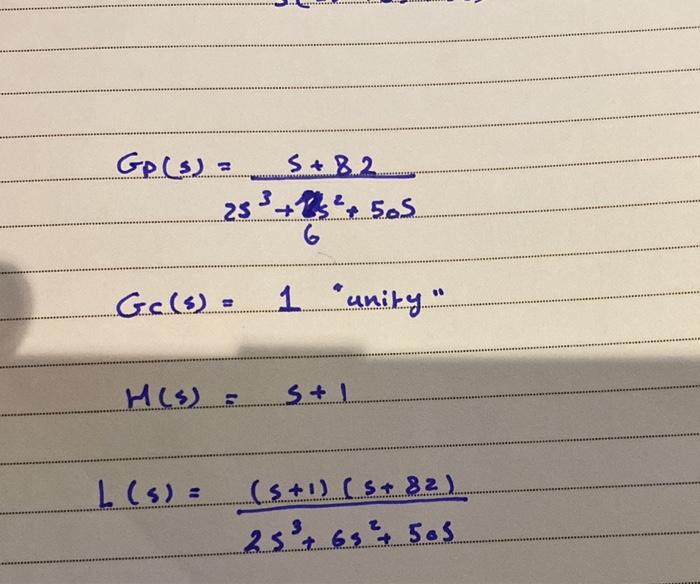 Gp(s) = s + 82
2s³ + s² + 50s
6
Gc(s) = 1 "unity"
H(s) = s + 1
L(s) = (s+1) (s+ 82)
2s³ + 6s² + 50s